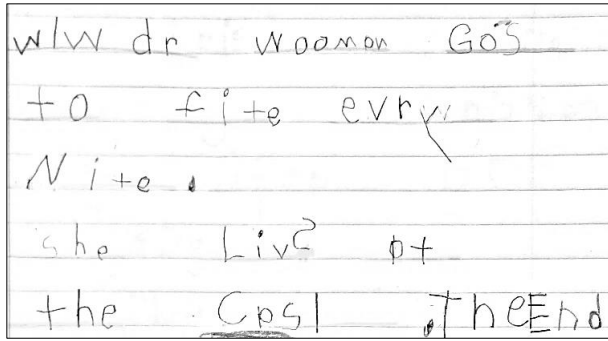 wIW dr woomon GoS
to fite evry
Nite.
she Livs at
the Casl .TheEnd